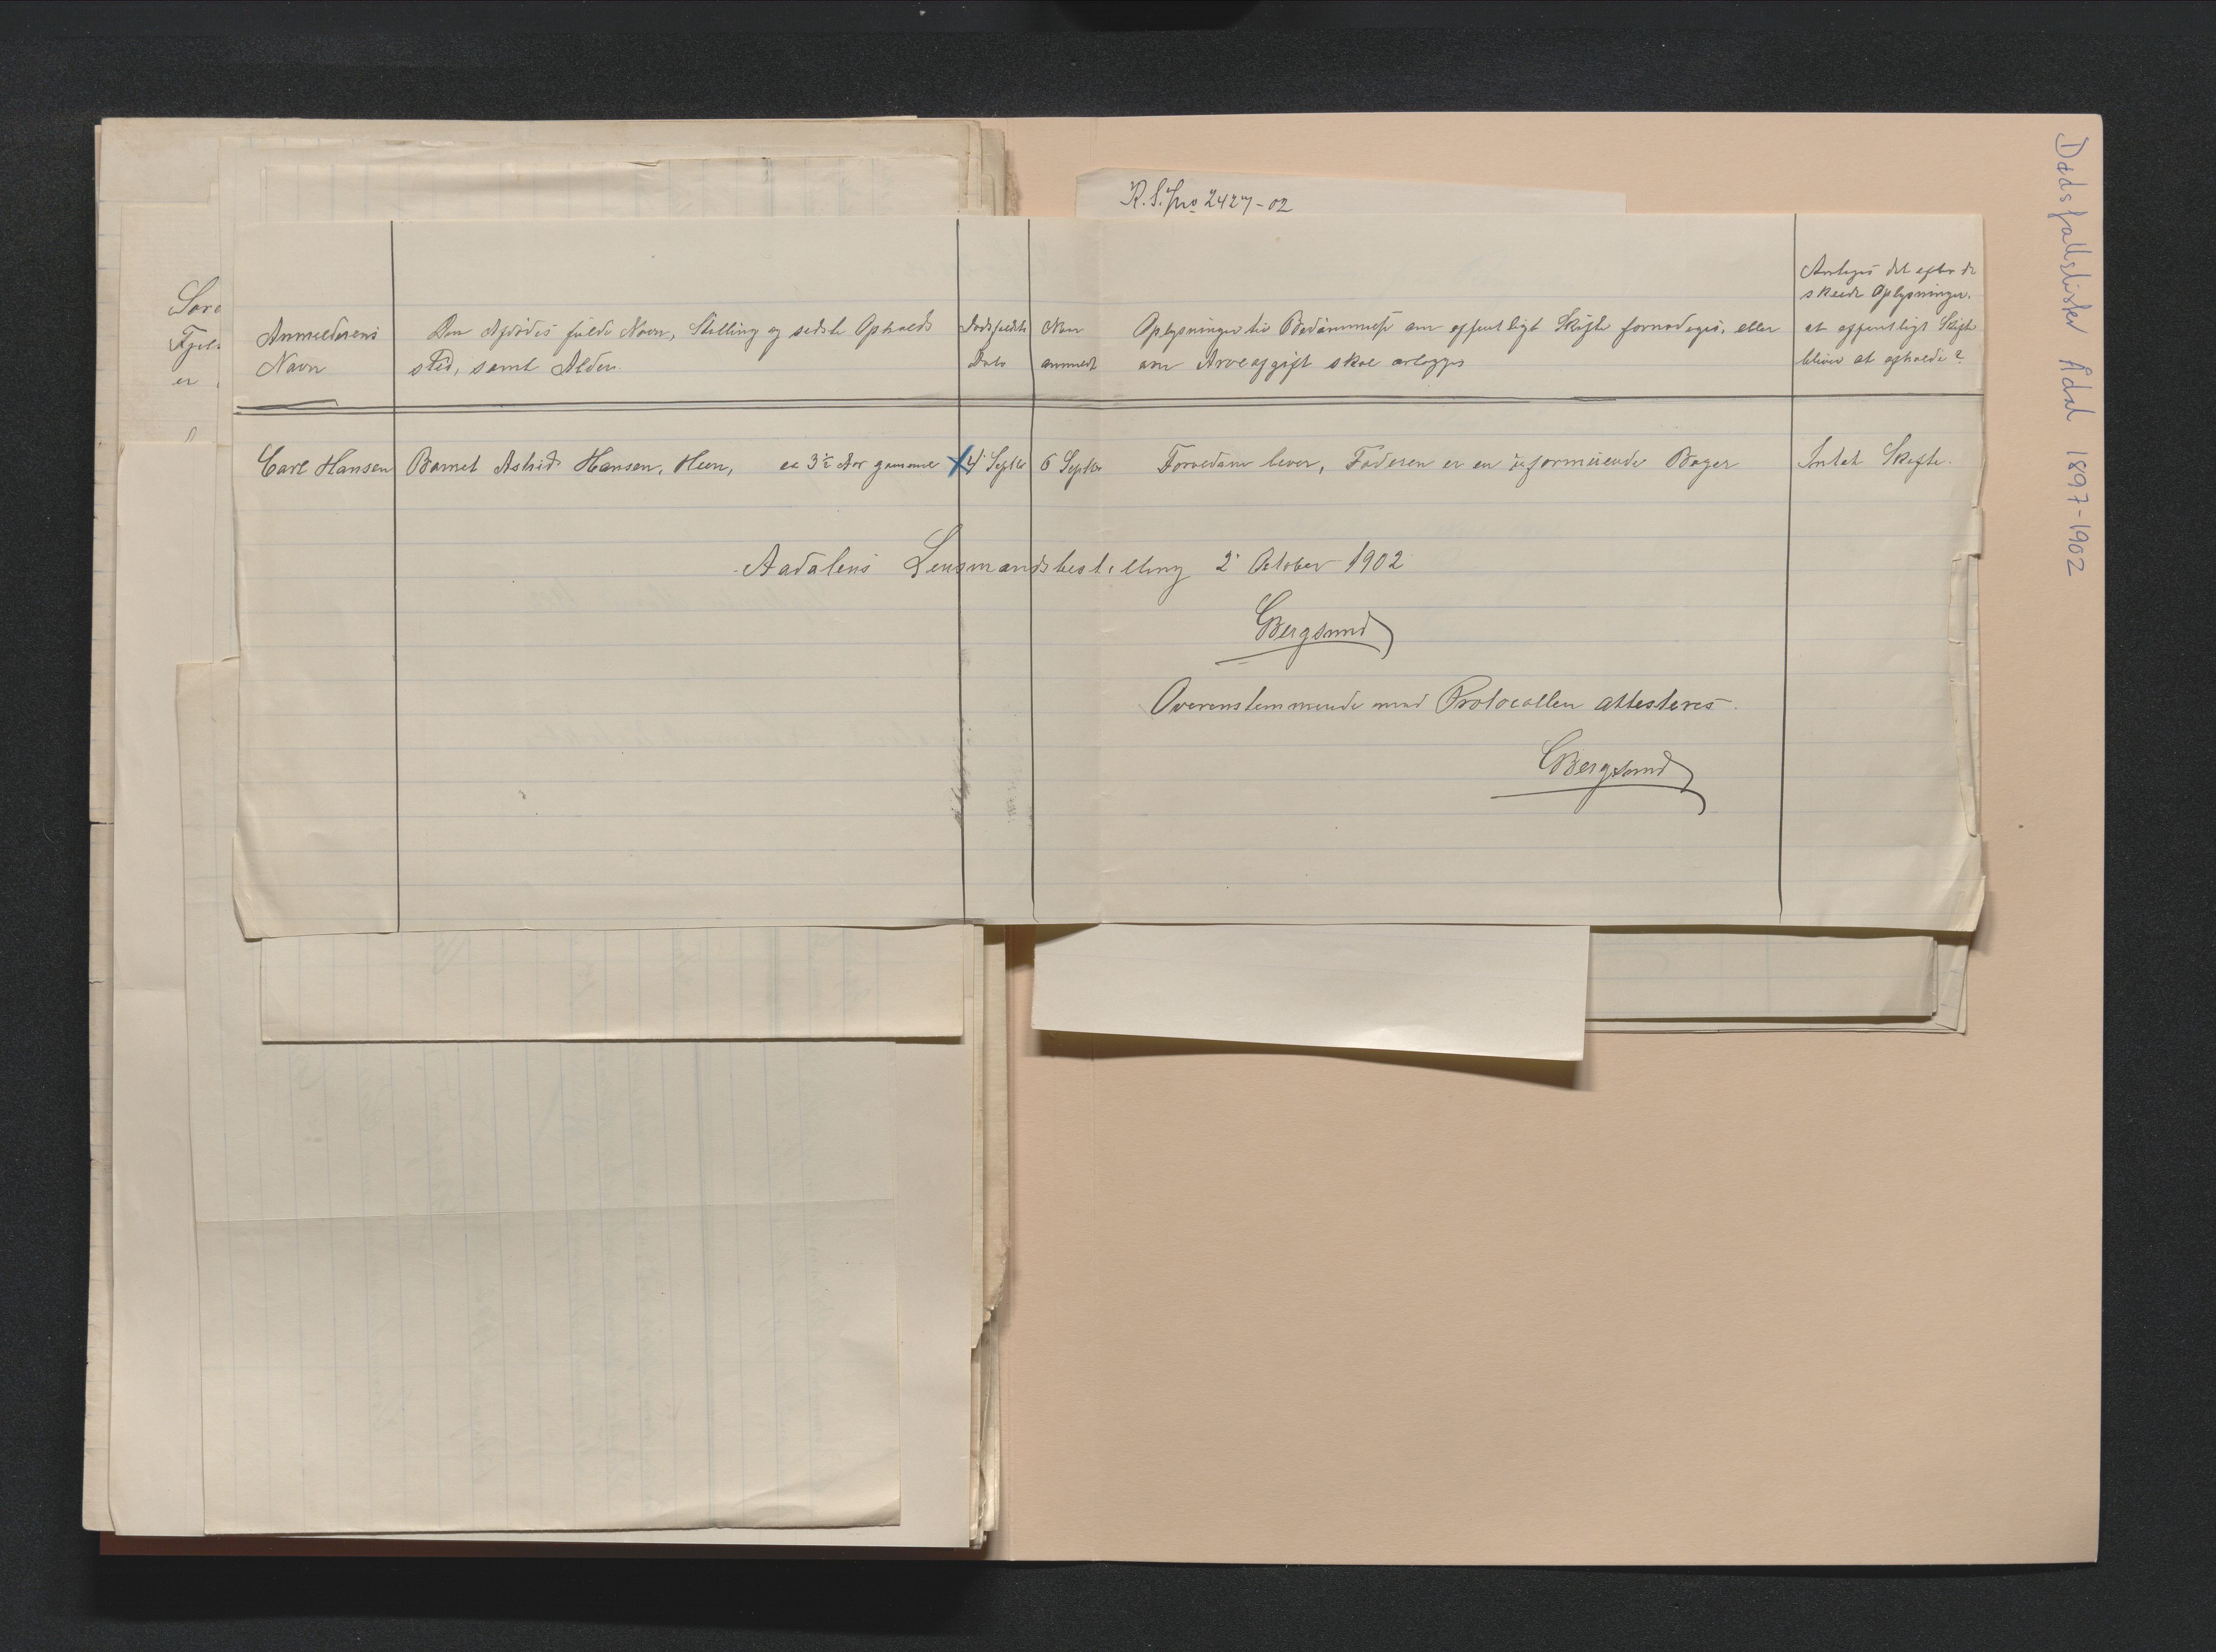 R. S. Jno 2427-02
Dødsfallslister Ådal 1897-1902
Soro
Fjel
er
Anmelderens
Navn
Den Afdødes fulde Navn, Stilling og sidste Opholds
sted, samt Alder.
Dødsfaldets
Dato
Naar
anmeldt
Oplysninger til Bedømmelse om offentligt Skifte fornødiges, eller
om Arveafgift skal erlægges
Antages det efter de
skeede Oplysninger,
at offentligt Skifte
bliver at afholde?
Carl Hansen
Barnet Astrid Hansen, Heen, ca 3½ Aar gammel
4 Septbr
6 Septbr
Forældrene lever, Faderen er en uformuende Bager
Intet Skifte.
Aadalens Lensmandsbestilling 2 October 1902
CBergsund
Overensstemmende med Protocollen attesteres.
CBergsund